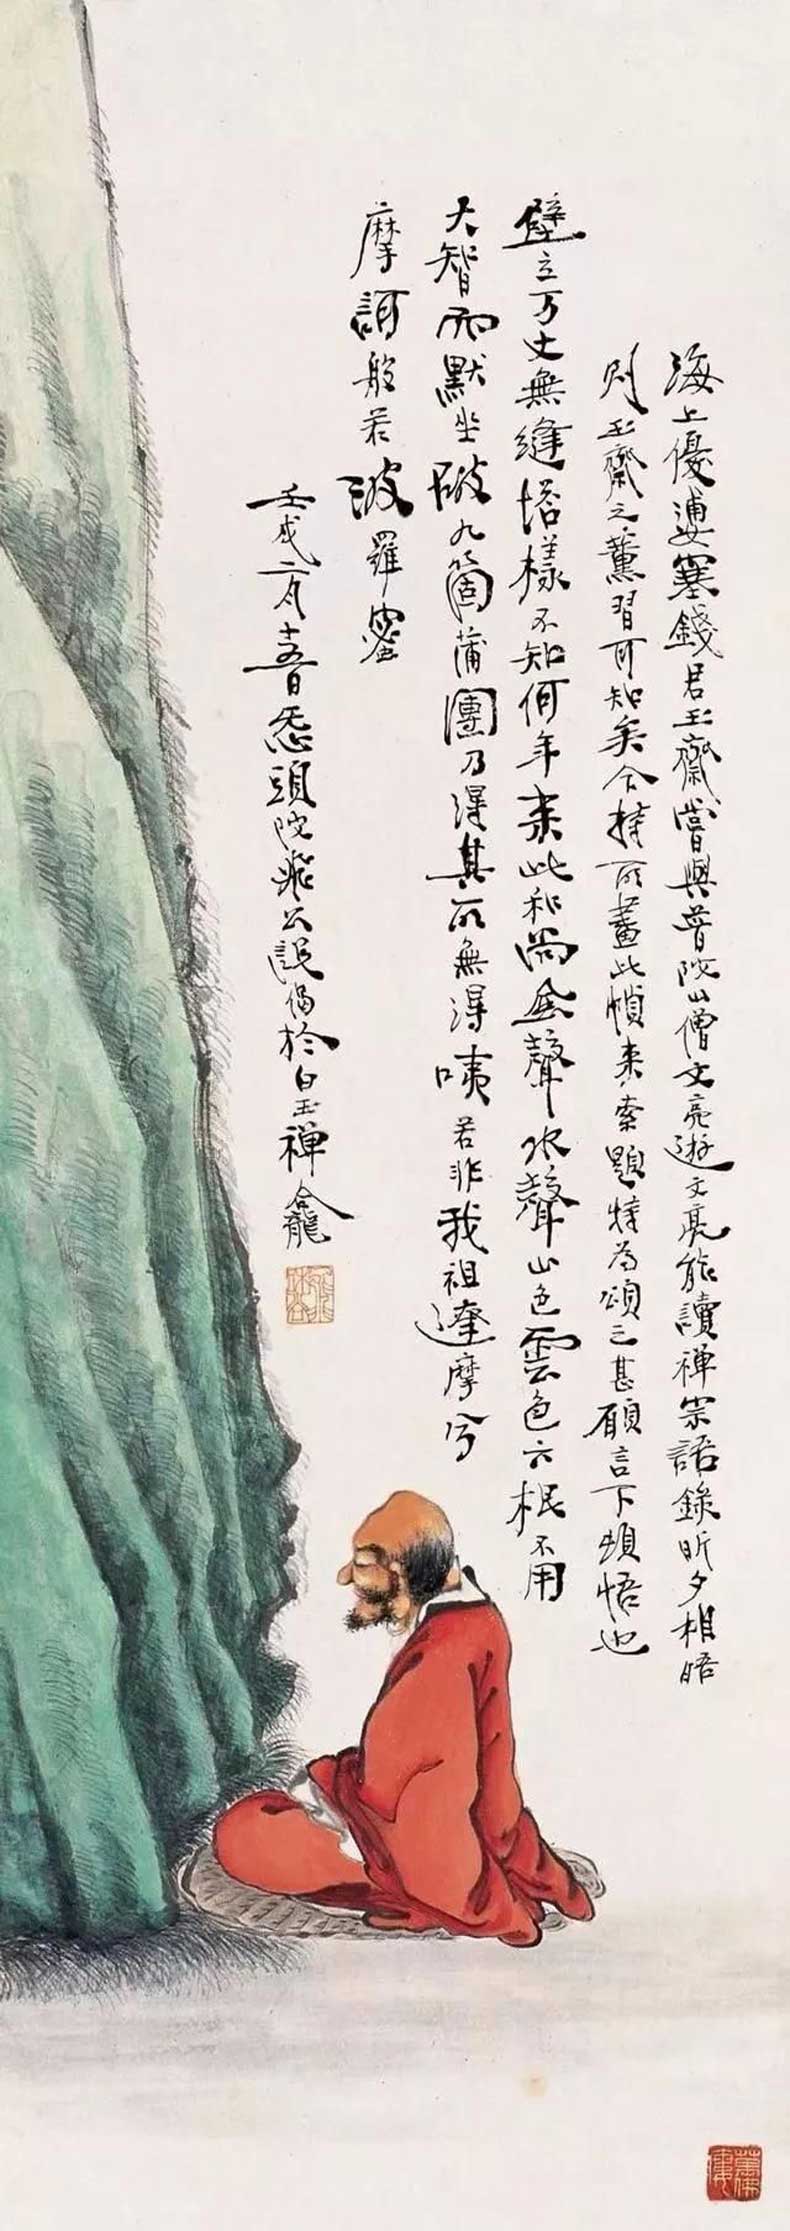 海上優婆塞錢君玉齋嘗與普陀山僧文亮遊文亮能讀禪宗語錄昕夕相晤
則玉齋之薰習可知矣今持所畫此幀来索題特為頌之甚願言下頓悟也
壁立万丈無縫塔樣不知何年来此和尚風聲水聲山色雲色六根不用
大智而默坐破九箇蒲團乃得其所無得咦若非我祖達摩兮
摩訶般若波羅蜜
壬戌六月十五日忍頭陀飛公說偈於白玉禪龕